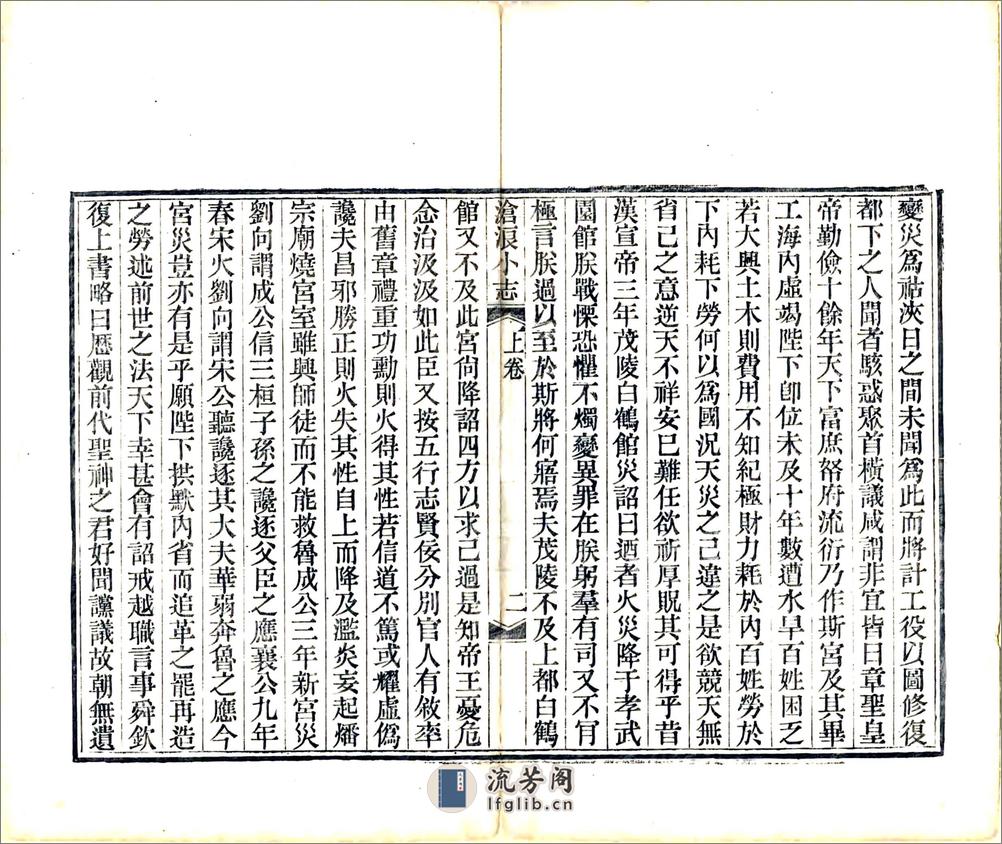 變災爲祜浹日之間未聞爲此而將計工役以圖修復
都下之人聞者駭惑聚首橫議咸謂非宜皆曰章聖皇
帝勤儉十餘年天下富庶帑府流衍乃作斯宮及其畢
工海內虛竭陛下卽位未及十年數遭水旱百姓困乏
若大興土木則費用不知紀極財力耗於內百姓勞於
下內耗下勞何以爲國況天災之己違之是欲競天無
省己之意逆天不祥安己難任欲祈厚貺其可得乎昔
漢宣帝三年茂陵白鶴館災詔曰迺者火災降于孝武
園館朕戰慄恐懼不燭變異罪在朕躬羣有司又不肎
極言朕過以至於斯將何寤焉夫茂陵不及上都白鶴
滄浪小志 上卷 二
館又不及此宮尙降詔四方以求己過是知帝王憂危
念治汲汲如此臣又按五行志賢佞分別官人有敘率
由舊章禮重功勳則火得其性若信道不篤或耀虛僞
讒夫昌邪勝正則火失其性自上而降及濫炎妄起燔
宗廟燒宮室雖興師徒而不能救魯成公三年新宮災
劉向謂成公信三桓子孫之讒逐父臣之應襄公九年
春宋火劉向謂宋公聽讒逐其大夫華弱奔魯之應今
宮災豈亦有是乎願陛下拱默內省而追革之罷再造
之勞述前世之法天下幸甚會有詔戒越職言事舜欽
復上書略曰歷觀前代聖神之君好聞讜議故朝無遺
流芳阁
lfglib.cn